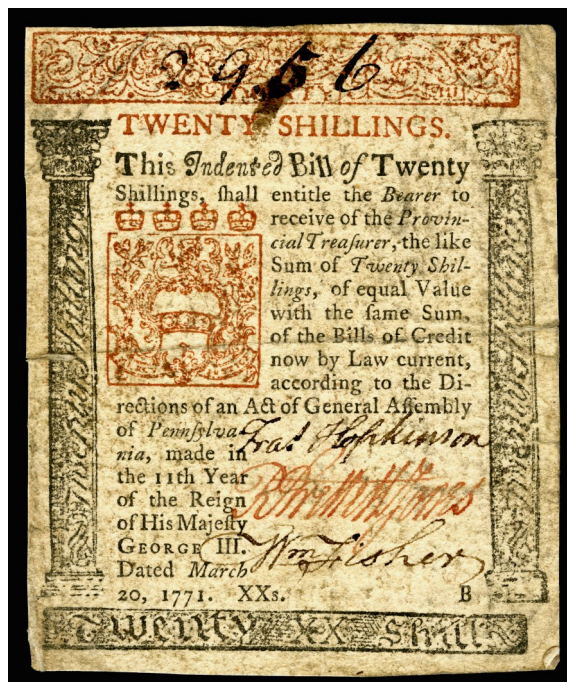 2956
TWENTY SHILLINGS.
This Indented Bill of Twenty
Shillings, ſhall entitle the Bearer to
receive of the Provin-
cial Treaſurer, the like
Sum of Twenty Shil-
lings, of equal Value
with the ſame Sum,
of the Bills of Credit
now by Law current,
according to the Di-
rections of an Act of General Aſſembly
of Pennſylva-
nia, made in
the 11th Year
of the Reign
of His Majeſty
GEORGE III.
Dated March
20, 1771. XXs. B
Fras Hopkinson
Wm Fisher
Twenty XX Shill